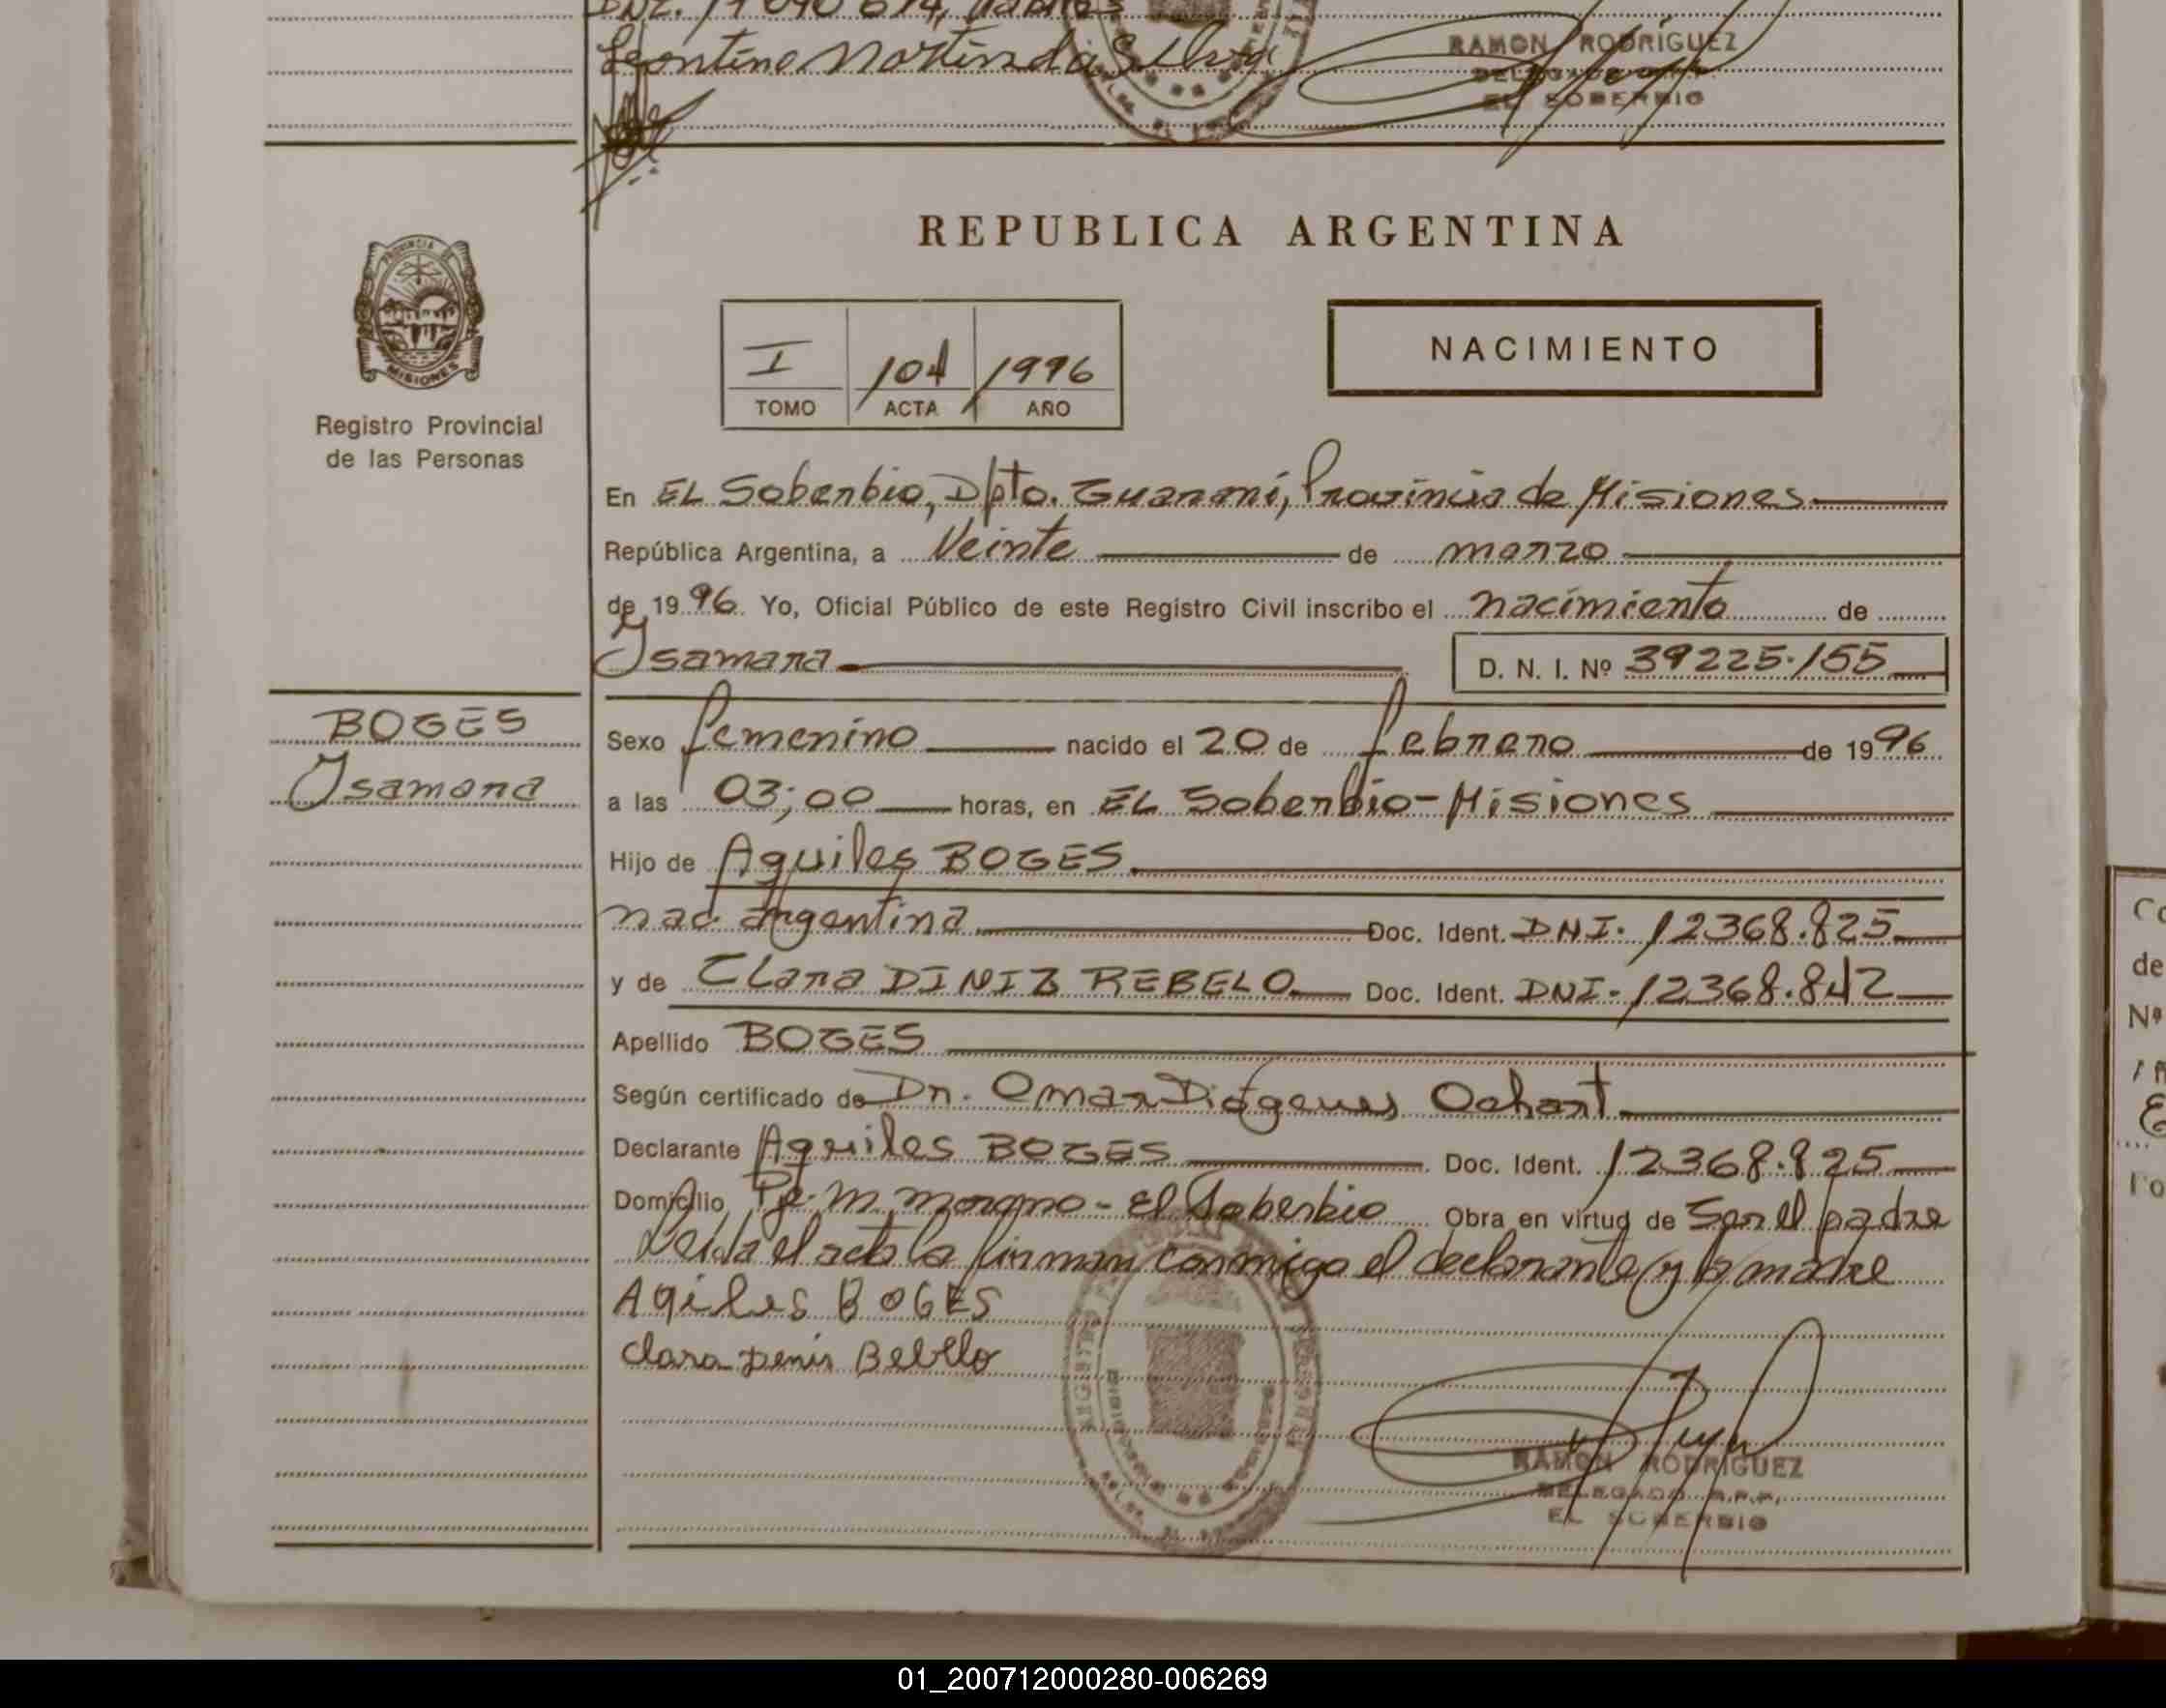 Leontino Martin da Silva
RAMON RODRIGUEZ
DELEGADO R.P.P.
EL SOBERBIO
REPUBLICA ARGENTINA
PROVINCIA DE
MISIONES
Registro Provincial
de las Personas
I 104 1996
TOMO ACTA AÑO
NACIMIENTO
En EL Soberbio, Dpto. Guaraní, Provincia de Misiones
República Argentina, a Veinte de marzo
de 1996 Yo, Oficial Público de este Registro Civil inscribo el nacimiento de
Isamara D. N. I. Nº 39225.155
BOGES
Isamara
Sexo femenino nacido el 20 de febrero de 1996
a las 03;00 horas, en EL Soberbio-Misiones
Hijo de Aquiles BOGES
nac argentina Doc. Ident. DNI. 12368.825
y de Clara DINIZ REBELO Doc. Ident. DNI- 12368.842
Apellido BOGES
Según certificado de Dr. Omar Diógenes Ochart
Declarante Aquiles BOGES Doc. Ident. 12368.825
Domicilio Pje. M. moreno - El Soberbio Obra en virtud de Ser el padre
Leida el acta la firman conmigo el declarante y la madre
Agiles BOGES
Clara Denis Bebllo
RAMON RODRIGUEZ
DELEGADO R.P.P.
EL SOBERBIO
Co
de
Nº
01_200712000280-006269